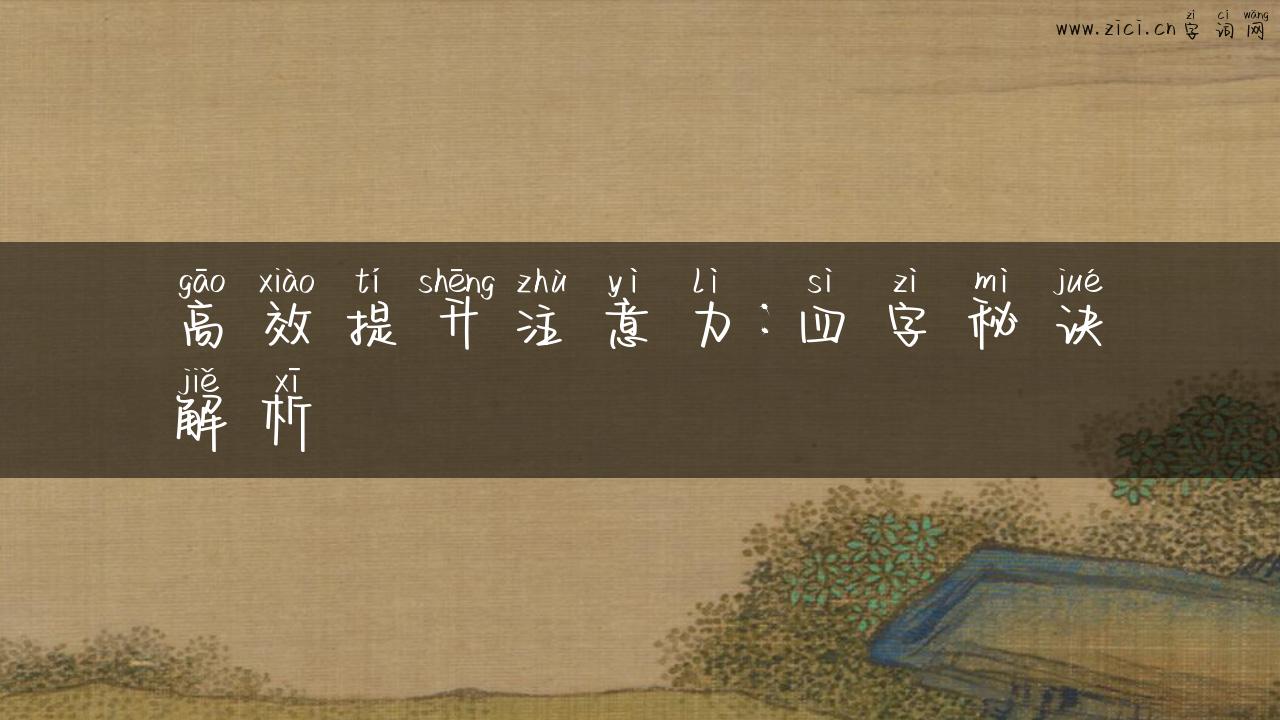 www.zici.cn字词网
zì cí wǎng
gāo xiào tí shēng zhù yì lì sì zì mì jué
高效提升注意力:四字秘诀
jiě xī
解析